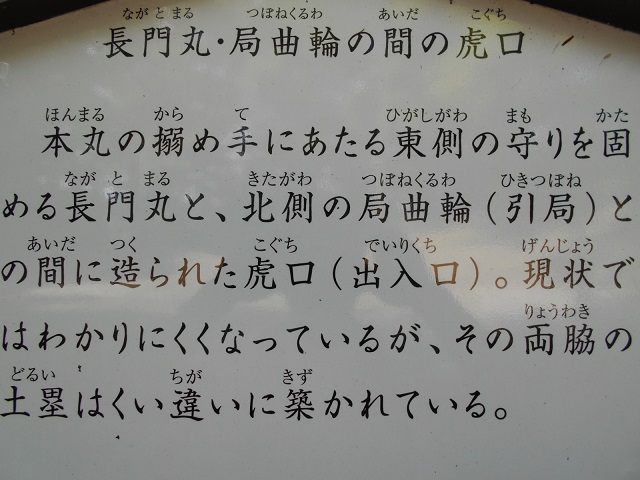 ながとまる つぼねくるわ あいだ こぐち
長門丸・局曲輪の間の虎口
ほんまる から て ひがしがわ まも かた
本丸の搦め手にあたる東側の守りを固
なが と まる きたがわ つぼねくるわ ひきつぼね
める長門丸と、北側の局曲輪(引局)と
あいだ つく こぐち でいりくち げんじょう
の間に造られた虎口(出入口)。現状で
りょうわき
はわかりにくくなっているが、その両脇の
どるい ちが きず
土塁はくい違いに築かれている。